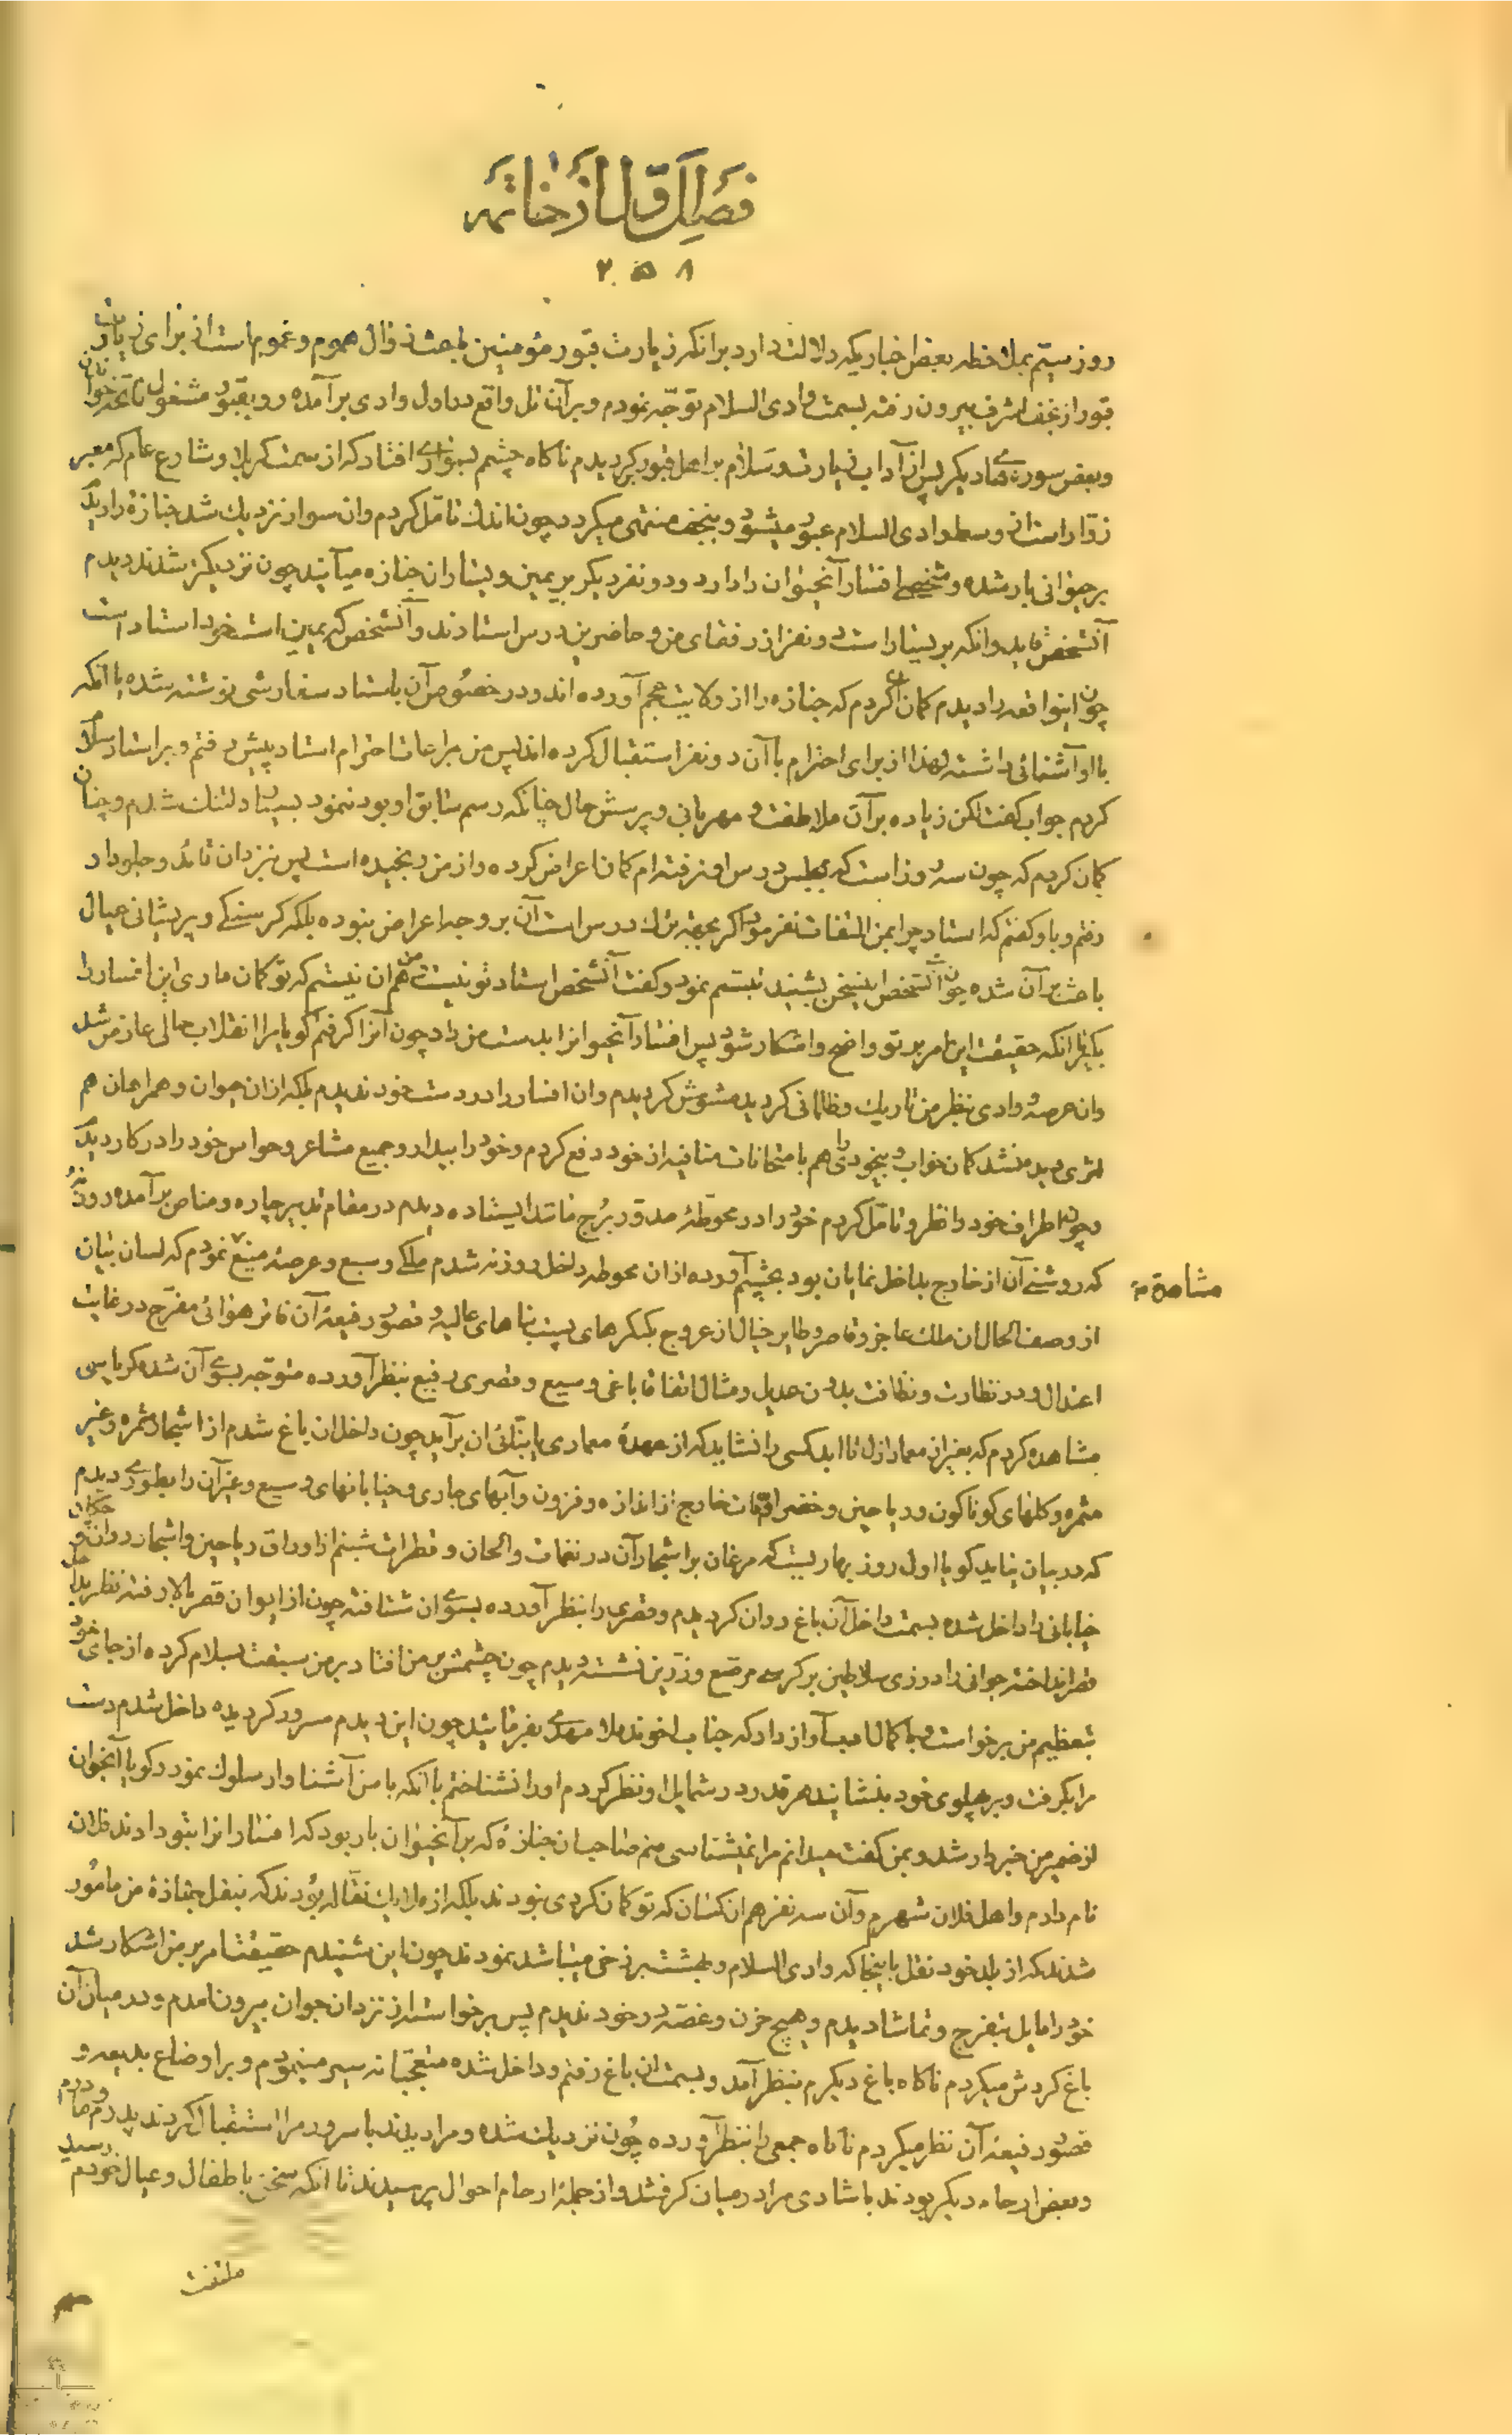 فصل اول از خاتمه
۲۵۸
روز سیّم بملاحظه بعض اخباریکه دلالت دارد بر انکه زیارت قبور مؤمنین باعث زوال هموم و غموم است از برای زیارت
قبور از نجف اشرف بیرون رفته بسمت وادی السلام توجّه نمودم و بر آن تل واقع در اول وادی بر آمده رو بقبور مشغول فاتحه خوانی
و بعض سورهای دیکر پس از آداب زیارت و سلام بر اهل قبور کردیدم ناکاه چشم بسواری افتاد که از سمت کربلا و شارع عام که معبر
زوّار است از وسط وادی السلام عبور میشود و بنجف منتهی میکردد چون اندك تامّل کردم وان سوار نزدیك شد جنازۀ را دیدم
بر حیوانی بار شده و شخصی افسار آنحیوان را دارد و دو نفر دیکر بر یمین و یسار ان جنازه میآیند چون نزدیکتر شدند دیدم
آنشخص قاید و انکه بر یسار است دو نفر از رفقای من و حاضرین درس استادند و آنشخص که بر یمین است خود استاد است
چون اینواقعه را دیدم کمان کردم که جنازه را از ولایت عجم آورده اند و در خصوص آن باستاد سفارشی نوشته شده یا انکه
با او آشنائی داشته لهذا از برای احترام با آن دو نفر استقبال کرده اند پس من مراعات احترام استاد پیش رفتم و بر استاد سلام
کردم جواب کفت لکن زیاده بر آن ملاطفت و مهربانی و پرسش حال چنانکه رسم سابق او بود ننمود بسیار دلتنك شدم و چنان
کمان کردم که چون سه روز است که بمجلس درس او نرفته ام کمان اعراض کرده و از من رنجیده است پس نزد ان قائد و جلودار
رفتم و باو کفتم که استاد چرا بمن التفات نفرمود اکر بجهة ترك درس است آن بر وجه اعراض نبوده بلکه کرسنکی و پریشانی عیال
باعث بر آن شده چون آنشخص اینسخن بشنید تبسّم نمود و کفت آنشخص استاد تو نیست من هم ان نیستم که تو کمان داری این افسار را
بکیر تا انکه حقیقت این امر بر تو واضح و اشکار شود پس افسار آنحیوانرا بدست من داد چون آنرا کرفتم کویا مرا انقلاب حالی عارض شد
وان عرصۀ وادی بنظر من تاریك و ظلمانی کردید مشوش کردیدم وان افسار را در دست خود ندیدم بلکه از ان حیوان و همراهان هم
اثری پدید نشد کمان خواب و بیخودی را هم بامتحانات منافیه از خود دفع کردم و خود را بیدار و جمیع مشاعر و حواس خود را در کار دیدم
و چون اطراف خود را نظر و تامّل کردم خود را در محوطۀ مدور برج مانند ایستاده دیدم در مقام تدبیر چاره و مناص بر آمده روزنۀ
که روشنی آن از خارج بداخل نمایان بود بچشم آورده از ان محوطه داخل روزنه شدم ملکی وسیع و عرصۀ منیع نمودم که لسان بیان
مشاهده
از وصف الحال ان ملك عاجز و قاصر و طایر خیال از عروج بکنکرهای پست بناهای عالیه و قصور رفیعۀ آن قاصر هوائی مفرّح در غایت
اعتدال و در نظارت و نظافت بدون عدیل و مثال اتفاقا باغی وسیع و قصری رفیع بنظر آورده متوجه بسوی آن شده کریاسی
مشاهده کردم که بغیر از معمار ازل تا ابد کسی را نشاید که از عهدۀ معماری یا بنائی ان برآید چون داخل ان باغ شدم از اشجار مثمره و غیر
مثمره و کلهای کوناکون و ریاحین و خضراوات خارج از اندازه و فزون و آبهای جاری و خیابانهای وسیع و غیر آن را بطوری دیدم
که در بیان نیاید کویا اول روز بهار یست که مرغان بر اشجار آن در نغمات و الحان و قطرات شبنم از اوراق ریاحین و اشجار روان و چکان
خیابانی را داخل شده بسمت داخل آن باغ روان کردیدم و قصری را بنظر آورده بسوی ان شتافته چون از ایوان قصر بالا رفته نظر بداخل
قصر انداخته جوانی را در زی سلاطین بر کرسی مرصّع و زرّین نشسته دیدم چون چشمش بر من افتاد بر من سبقت بسلام کرده از جای خود
بتعظیم من برخواست و با کمال ادب آواز داد که جناب اخوند ملا مهدی بفرمائید چون این دیدم مسرور کردیده داخل شدم دست
مرا بکرفت و بر پهلوی خود بنشانید هر قدر در شمایل او نظر کردم او را نشناختم با انکه با من آشناوار سلوك نمود و کویا آنجوان
از ضمیر من خبردار شد و بمن کفت میدانم مرا نمیشناسی منم صاحب ان جنازۀ که بر آنحیوان بار بود که افسار انرا بتو دادند فلان
نام دارم و اهل فلان شهرم و آن سه نفر هم ان کسان که تو کمان کردی نبودند بلکه از ملایك نقّاله بودند که بنقل جنازۀ من مامور
شدند که از بلد خود نقل باینجا که وادی السلام و بهشت برزخی میباشد نمودند چون این شنیدم حقیقت امر بر من اشکار شد
خود را مایل بتفرج و تماشا دیدم و هیچ حزن و غصّه در خود ندیدم پس برخواسته از نزد ان جوان بیرون امدم و در میان آن
باغ کردش میکردم ناکاه باغ دیکرم بنظر آمد و بسمت ان باغ رفتم و داخل شده متعجّبانه سیر مینمودم و بر اوضاع بدیعه و
قصور رفیعۀ آن نظر میکردم ناکاه جمعی را بنظر آورده چون نزدیك شده و مرا دیدند با سرور مرا استقبال کردند پدرم و مادرم
و بعض ارحام دیکر بودند با شادی مرا در میان کرفتند و از جملۀ ارحام احوال پرسیدند تا انکه سخن باطفال و عیال خودم رسید
ملتفت